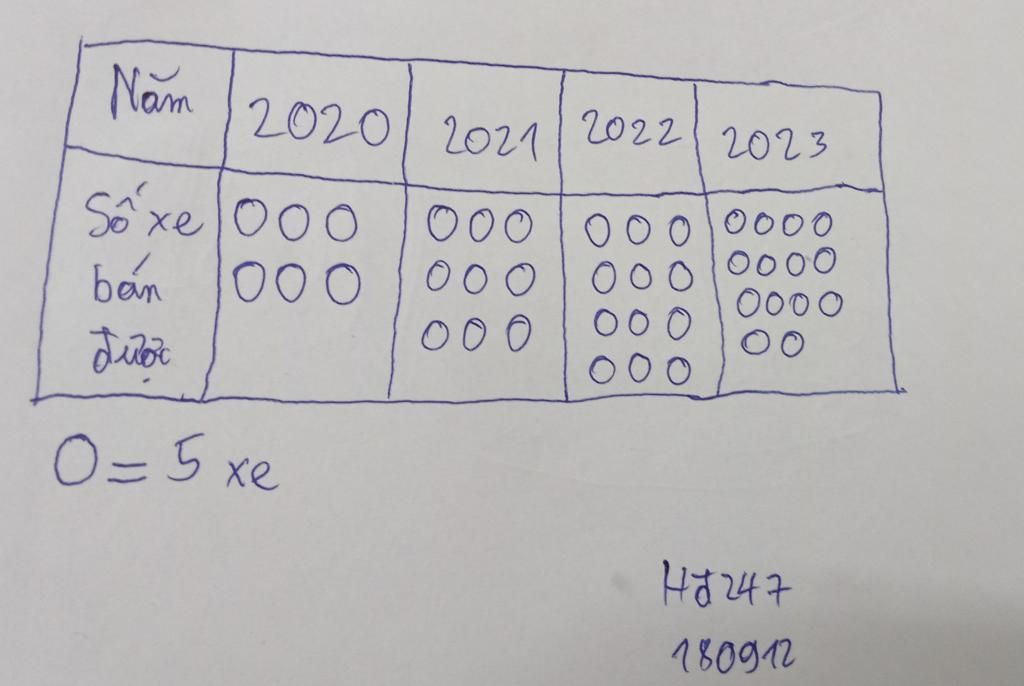 Năm 2020 2021 2022 2023
Số xe OOO OOO OOO OOOO
bán OOO OOO OOO OOOO
được OOO OOO OOOO
OOO OO
O = 5 xe
Hđ247
180912